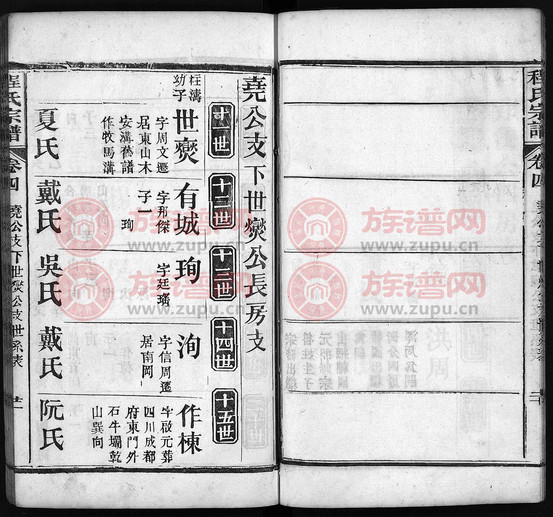 程氏宗譜
卷四
堯公支下世爕公長房支
十一世
十二世
十三世
十四世
十五世
汪濤幼子
世爕
字周文遷
居東山木
安溝舊譜
作牧馬溝
有城
字邦傑
子一
珣
珣
字廷璠
洵
字信周遷
居南岡
作棟
字啟元葬
四川成都
府東門外
石牛壩乾
山巽向
夏氏
戴氏
吳氏
戴氏
阮氏
程氏宗譜
卷四
堯公支下世爕公支世系表
族谱网
www.zupu.cn
族谱网
www.zupu.cn
族谱网
www.zupu.cn
族谱网
www.zupu.cn